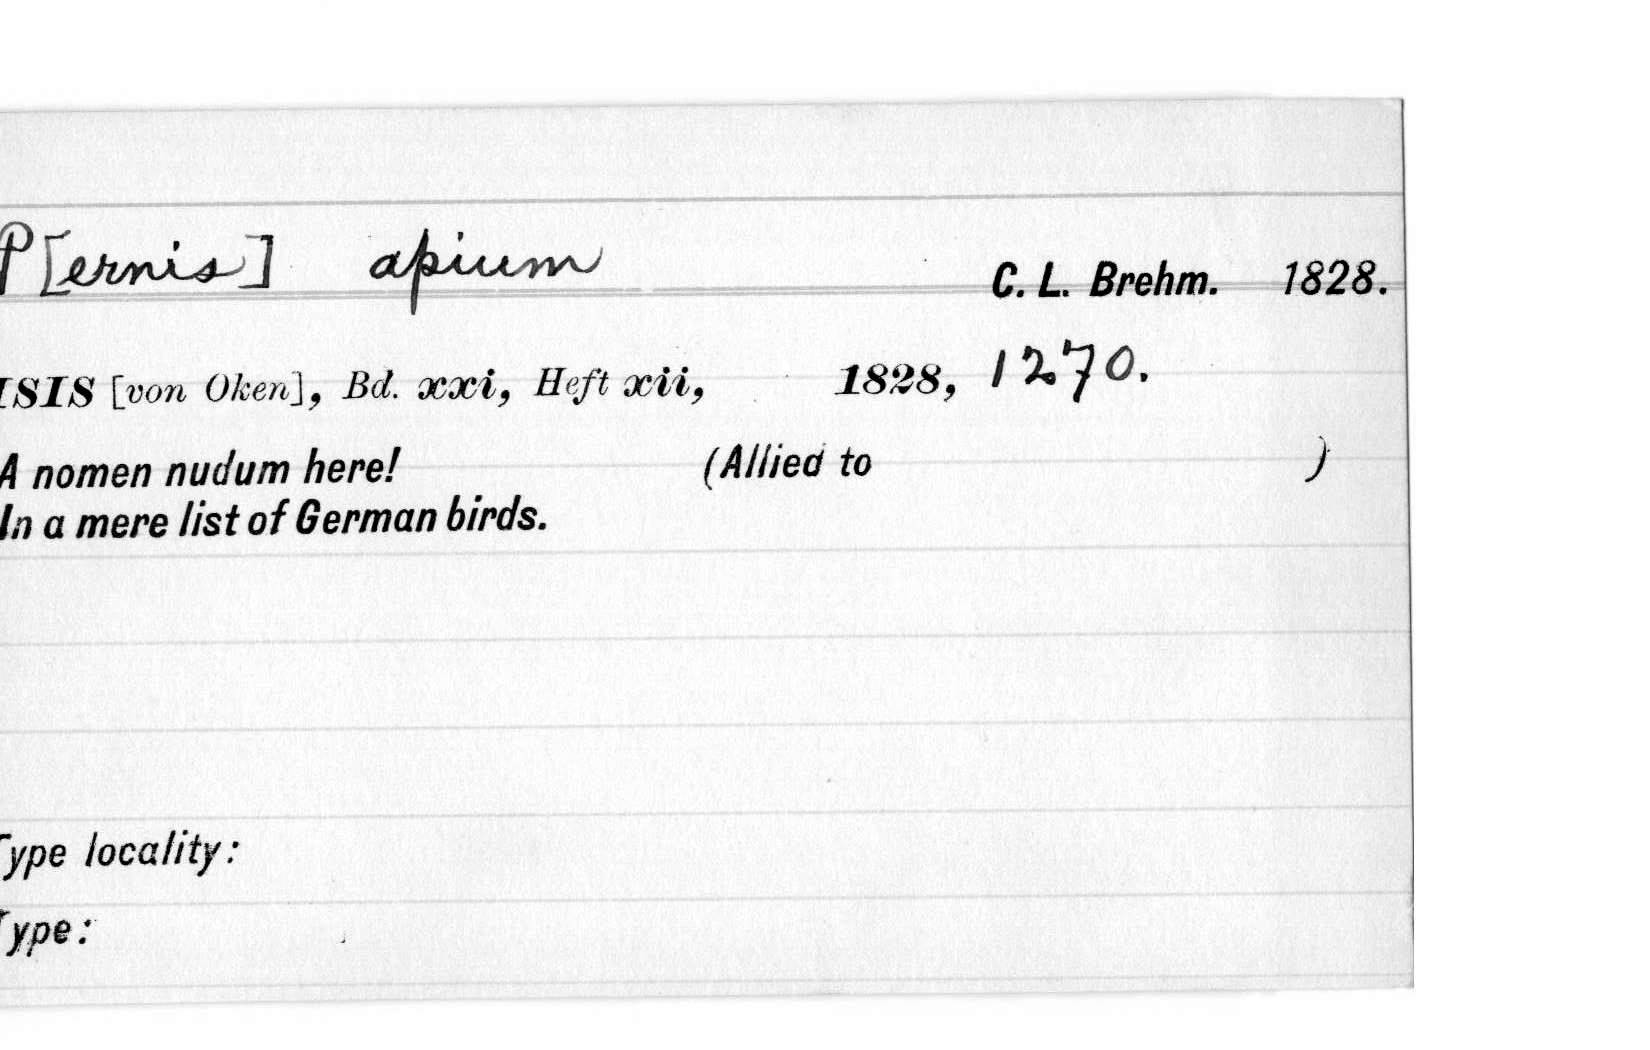 P[ernis] apium C. L. Brehm. 1828.
ISIS [von Oken], Bd. xxi, Heft xii, 1828, 1270.
A nomen nudum here! (Allied to )
In a mere list of German birds.
Type locality:
Type: